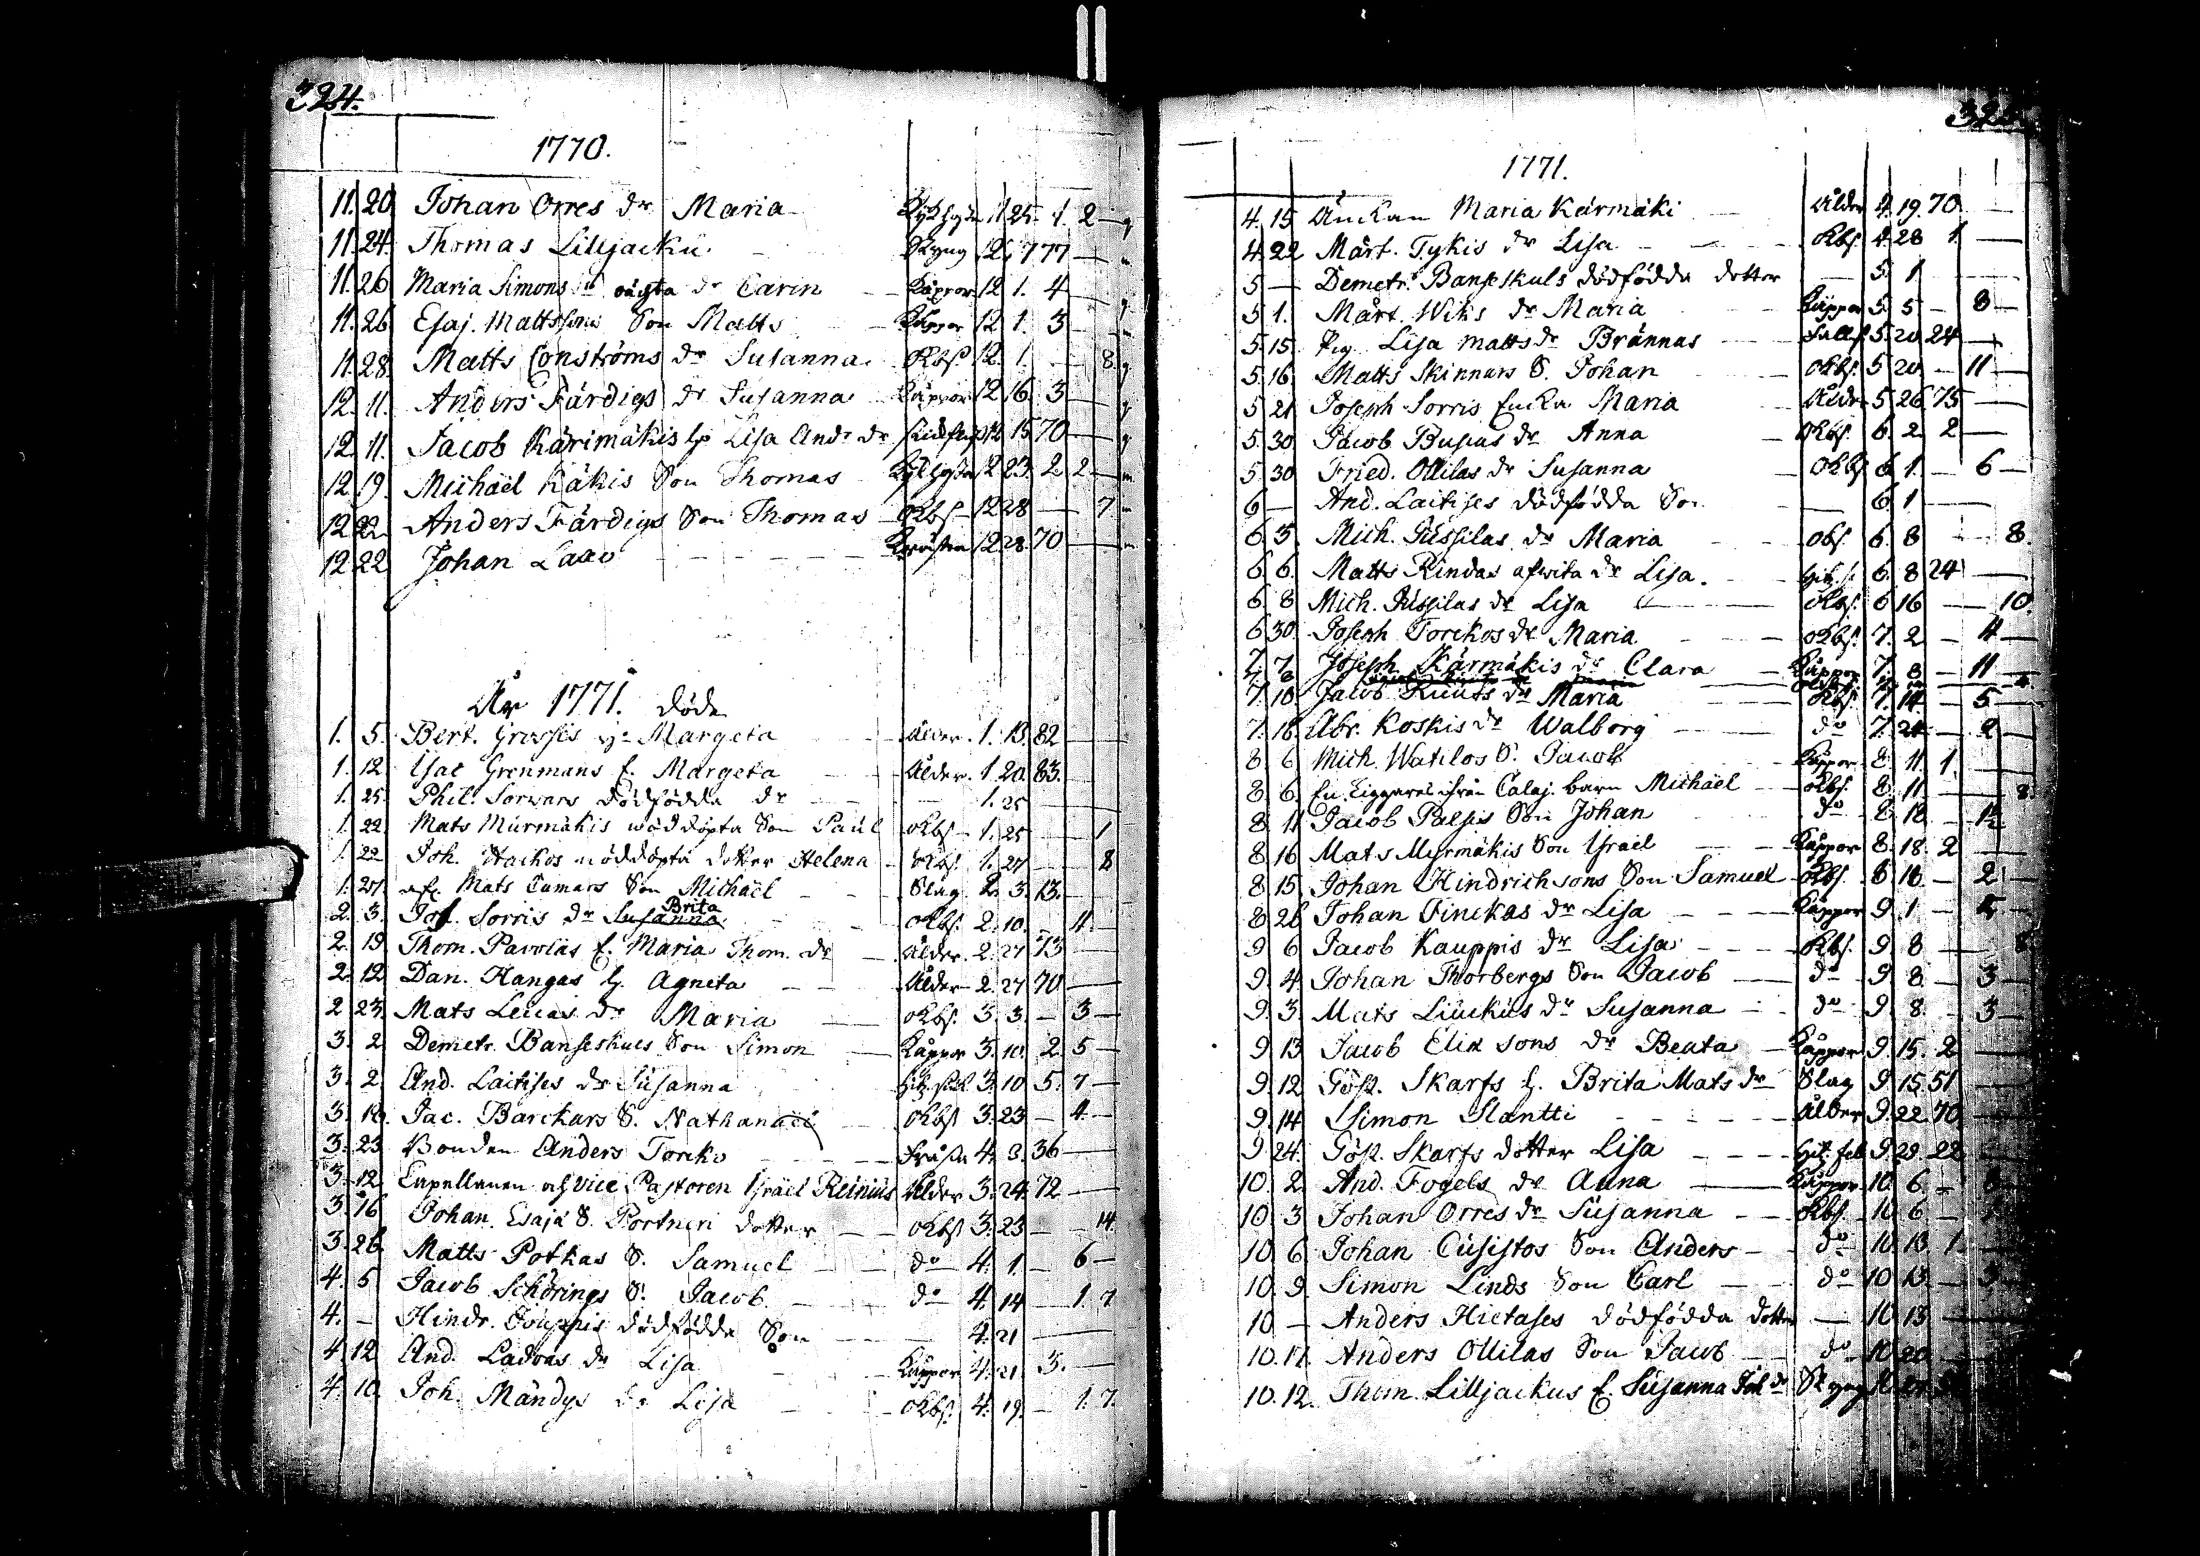 324.
1770.
11. 20 Johan Orres dr Maria 11 25. 1. 2 — q
11. 24. Thomas Lilljackü 12. 7 77 — m
11. 26 Maria Simons dr oägta dr Carin Kåppor 12 1. 4 — q
11. 26 Esaj. Mattssons Son Matts Kåppor 12 1. 3 — m
11. 28. Matts Conströms dr Susanna Okbs. 12. 1. — 8 q
12. 11. Anders Färdigs dr Susanna Kåppor 12 16. 3 — q
12. 11. Jacob Kärimäkis h. Lisa And. dr 12 15 70 — q
12. 19. Michäel Käkis Son Thomas 12 23. 2 2 — m
12 22. Anders Färdigs Son Thomas Okbs 12 28 — 7. m
12. 22 Johan Laao 12 28. 70 — m
År 1771. döde
1. 5. Bert. Grosses h. Margeta Ålder. 1. 13. 82 —
1. 12 Isac Grenmans E. Margeta Ålder. 1. 20. 83. —
1. 25. Phil. Sorvars dödfödda dr — 1. 25 —
1. 22 Mats Murmäkis nöddöpta Son Paul Okbs — 1. 25 — 1
1. 22 Joh. Hackos nöddöpta dotter Helena Okbs. 1. 27 — 8
1. 27 afl. Mats Cumars Son Michäel Slag 2. 3. 13. —
2. 3. Jos. Sorris dr Susanna Brita Okbs. 2. 10. — 11 —
2. 19 Thom. Pavolas E. Maria Thom. dr Ålder. 2. 27 73 —
2. 12 Dan. Hangas h. Agneta Ålder 2. 27 70 —
2 23. Mats Leücas dr Maria Okbs. 3. 3. — 3 —
3. 2 Demetr. Banseskuls Son Simon Kåppor 3. 10. 2 5 —
3. 2. And. Laitises dr Susanna 3. 10 5. 7 —
3. 18. Jac. Barckars S. Nathanaël Okbs 3. 23 — 4 —
3. 23 Bonden Anders Torcko 4. 3. 36 —
3. 12 Capellanen och Vice Pastoren Israël Reinius Ålder 3. 24. 72 —
3. 16 Johan Esajæ S. Portneri dotter Okbs 3. 23 — 14
3. 26 Matts Potkas S. Samuel do 4. 1. — 6 —
4. 5 Jacob Schörings S. Jacob do 4. 14 — 1. 7.
4. — Hindr. Jouppis dödfödda Son — 4. 21 —
4. 12 And. Ladvas dr Lisa Kåppor 4. 21 3. —
4. 10. Joh. Mändys dr Lisa Okbs. 4. 19. — 1. 7.
325
1771.
4. 15 Änckan Maria Kärmäki Ålder 4. 19. 70 —
4 22 Märt. Tykis dr Lisa Okbs. 4. 28 1 —
5 — Demetr. Banseskuls dödfödda dotter — 5. 1
5 1. Märt. Wiks dr Maria Kåppor 5. 5 — 8 —
5. 15. Pig. Lisa Matts dr Brännas 5. 20 24 —
5. 16. Matts Skinnars S. Johan Okbs. 5 20 — 11 —
5 21 Joseph Sorris Encka Maria Ålder 5. 26. 75 —
5. 30 Jacob Bupas dr Anna Okbs. 6. 2. 2 —
5. 30 Fried. Ollilas dr Susanna Okbs 6. 1. — 6 —
6 — And. Laitises dödfödda Son — 6. 1 —
6. 5. Mich. Püssilas dr Maria Okbs. 6. 8 — 8.
6. 6. Matts Rindas afwita dr Lisa. 6. 8 24 —
6 8 Mich. Püssilas dr Lisa Okbs. 6 16 — 10.
6 30. Joseph Torckos dr Maria Okbs. 7. 2 — 4 —
7. 7. Joseph Kärmäkis dr Clara Kåppor 7. 8 — 11 —
7. 10 Jacob Kuuts dr Maria Okbs. 7. 14. — 5 —
7. 16. Abr. Koskis dr Walborg do 7. 21 — 2
8. 6 Mich. Watilos S. Jacob Kåppor 8. 11. 1. —
8. 6. En Tiggares ifrån Calaj. barn Michäel Okbs. 8. 11 — 8.
8. 11 Jacob Palsis Son Johan do 8. 18 — 1½
8. 16 Mats Myrmäkis Son Israel Kåppor 8. 18. 2 —
8. 15. Johan Hindrichsons Son Samuel Okbs. 8 18 — 2 —
8 26 Johan Finckas dr Lisa Kåppor 9. 1 — 5 —
9 6 Jacob Kauppis dr Lisa Okbs. 9. 8 — 8
9. 4 Johan Thorbergs Son Jacob do 9. 8. — 3 —
9. 3 Mats Liückus dr Susanna do 9. 8. — 3 —
9. 13 Jacob Elia sons dr Beata Kåppor 9. 15. 2 —
9. 12 Göst. Skarfs h. Brita Mats dr Slag 9. 15. 51 —
9. 14 Simon Slantti Ålder 9. 22 70
9. 24. Göst. Skarfs dotter Lisa 9. 29. 22
10. 2. And. Fogels dr Anna Kåppor 10. 6 — 8
10. 3 Johan Orres dr Süsanna Okbs. 10 6 —
10. 6 Johan Cusistos Son Anders do 10. 13 1
10. 9. Simon Linds Son Carl do 10 13. — 3
10 — Anders Hietases dödfödda dotter — 10 13 —
10. 17. Anders Ollilas Son Jacob do 10 20
10. 12. Thom. Lilljackus E. Süsanna Joh. dr